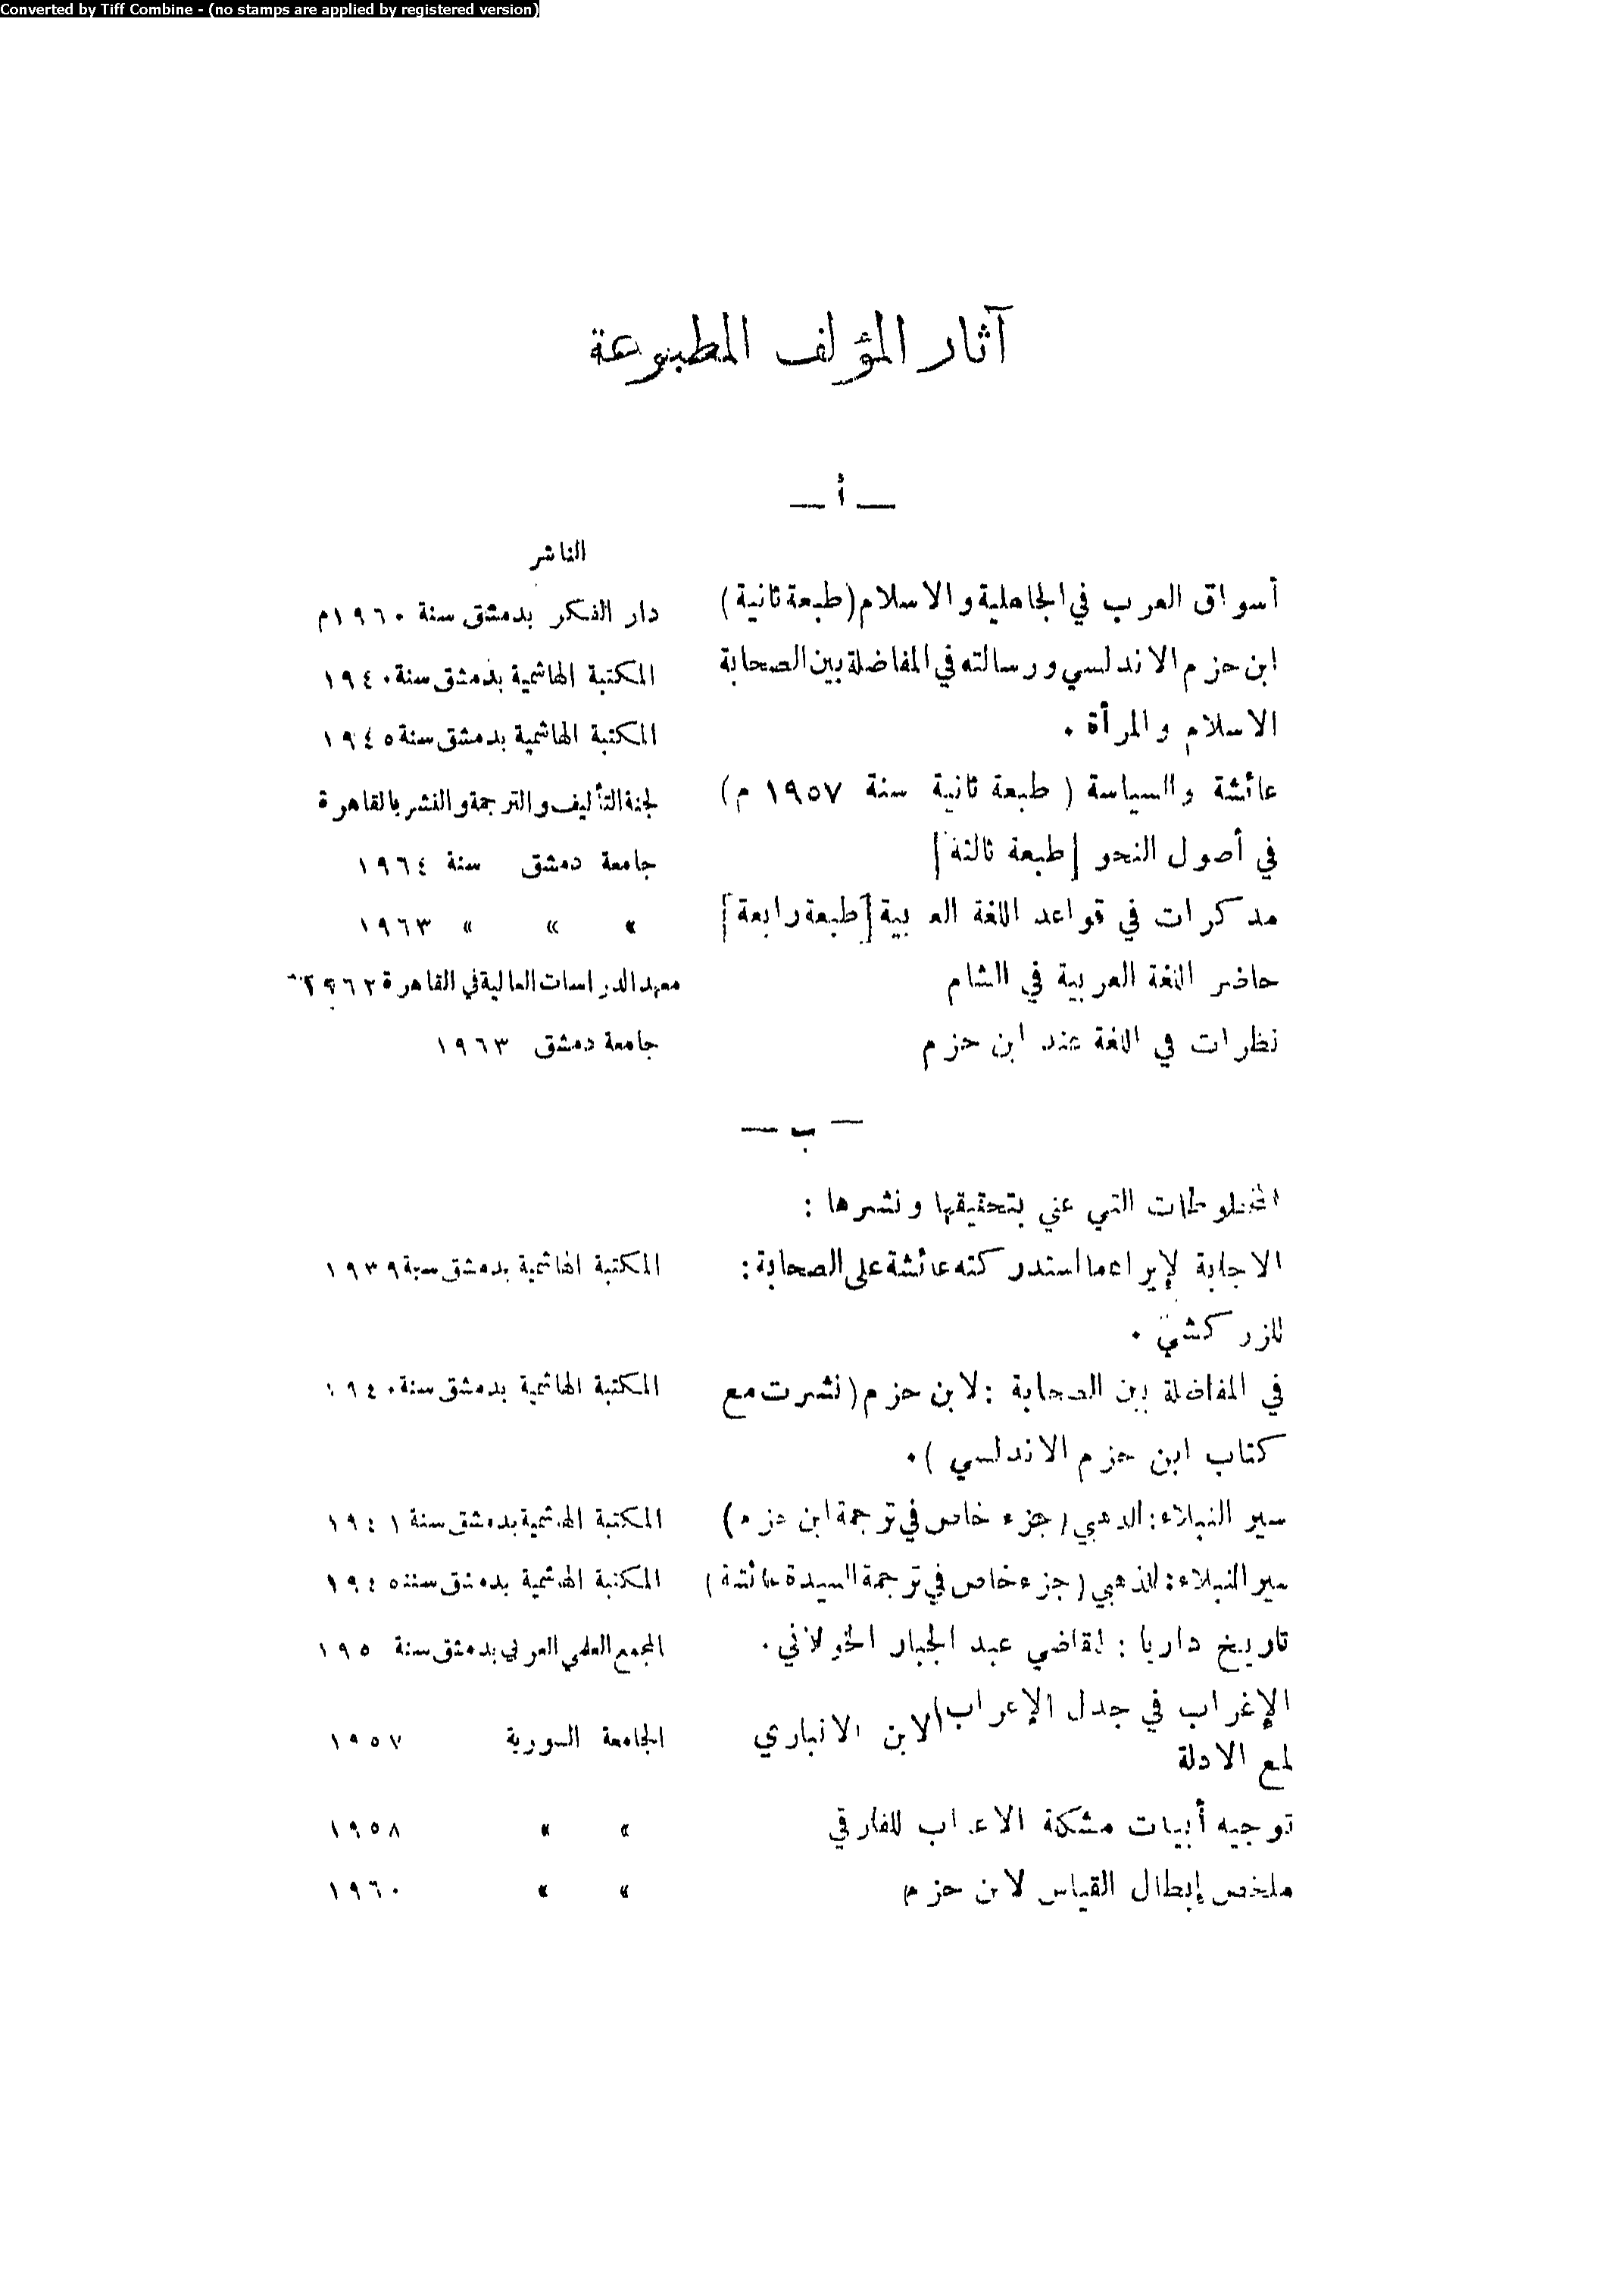 Converted by Tiff Combine - (no stamps are applied by registered version)
آثار المؤلف المطبوعة
— أ —
الناشر
أسواق العرب في الجاهلية والاسلام (طبعة ثانية) دار الفكر بدمشق سنة ١٩٦٠م
ابن حزم الاندلسي ورسالته في المفاضلة بين الصحابة المكتبة الهاشمية بدمشق سنة ١٩٤٠
الاسلام والمرأة . المكتبة الهاشمية بدمشق سنة ١٩٤٥
عائشة والسياسة ( طبعة ثانية سنة ١٩٥٧ م ) لجنة التأليف والترجمة والنشر بالقاهرة
في أصول النحو [طبعة ثالثة] جامعة دمشق سنة ١٩٦٤
مذكرات في قواعد اللغة العربية [طبعة رابعة] » » » ١٩٦٣
حاضر اللغة العربية في الشام معهد الدراسات العالية في القاهرة
نظرات في اللغة عند ابن حزم جامعة دمشق ١٩٦٣
— ب —
المخطوطات التي عني بتحقيقها ونشرها :
الاجابة لإيراد ما استدركته عائشة على الصحابة : المكتبة الهاشمية بدمشق سنة ١٩٣٩
للزركشي .
في المفاضلة بين الصحابة : لابن حزم (نشرت مع المكتبة الهاشمية بدمشق سنة ١٩٤٠
كتاب ابن حزم الاندلسي ) .
سير النبلاء : للذهبي (جزء خاص في ترجمة ابن حزم) المكتبة الهاشمية بدمشق سنة ١٩٤١
سير النبلاء : للذهبي (جزء خاص في ترجمة السيدة عائشة) المكتبة الهاشمية بدمشق سنة ١٩٤٥
تاريخ داريا : للقاضي عبد الجبار الخولاني . المجمع العلمي العربي بدمشق سنة ١٩٥
الإغراب في جدل الإعراب ( لابن الانباري الجامعة السورية ١٩٥٧
لمع الادلة
توجيه أبيات مشكلة الاعراب للفارقي » » ١٩٥٨
ملخص إبطال القياس لابن حزم » » ١٩٦٠